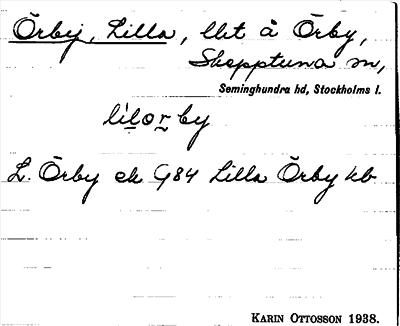 Örby, Lilla, llit å Örby,
Skepptuna sn,
Seminghundra hd, Stockholms l.
lìlorby
L. Örby ek G84 Lilla Örby kb
KARIN OTTOSSON 1938.